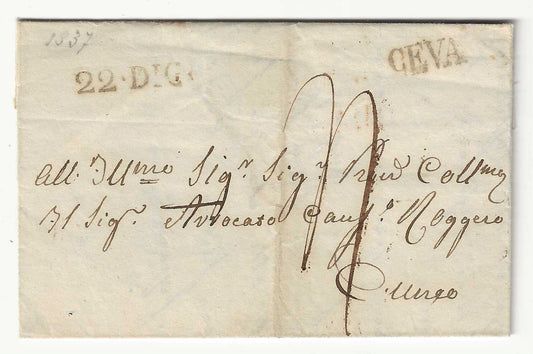 1837
22·DIC·
CEVA
All. Illmo Sigr Sigr Coll
Il Sigr Avvocato Cauo Roggero
Cuneo